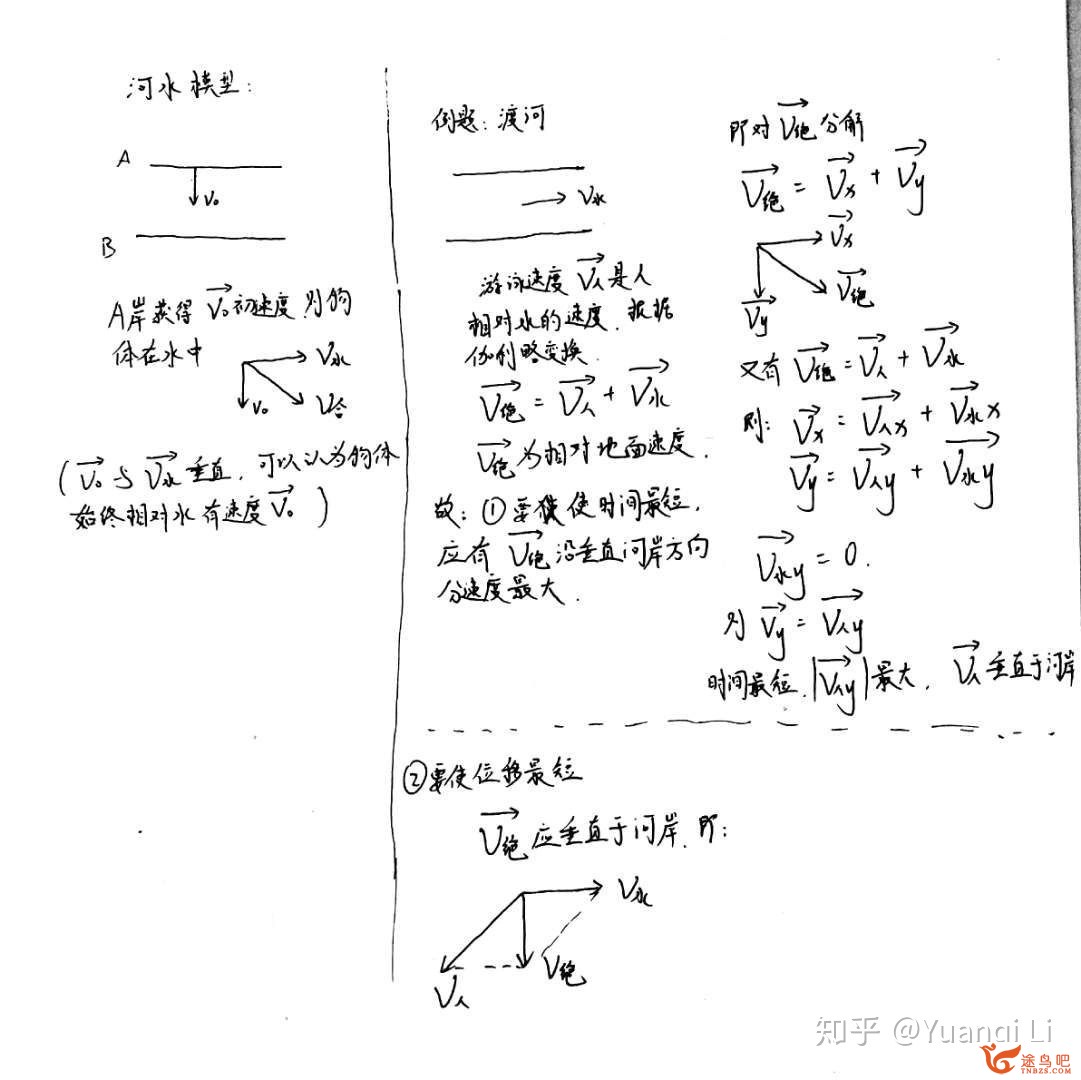 河水模型:
A
V₀
B
A岸获得 V₀初速度,则物
体在水中
V水
V₀
V合
(V₀与V水垂直,可以认为物体
始终相对水有速度V₀)
例题:渡河
V水
游泳速度V人是人
相对水的速度.根据
伽利略变换.
V绝=V人+V水
V绝为相对地面速度.
故:①要使时间最短,
应有V绝沿垂直河岸方向
分速度最大.
即对V绝分解
V绝=Vx+Vy
Vx
V绝
Vy
又有V绝=V人+V水
则:Vx=V人x+V水x
Vy=V人y+V水y
V水y=0.
则Vy=V人y
时间最短,|V人y|最大,V人垂直于河岸
②要使位移最短
V绝应垂直于河岸,即:
V水
V绝
V人
知乎 @Yuanqi Li
途鸟吧
TNBZS.COM